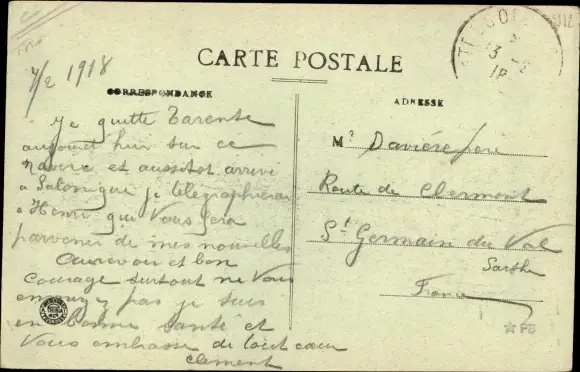 CARTE POSTALE
7/2 1918
CORRESPONDANCE
Je quitte Tarente
aujourd hui sur ce
navire et aussitot arrivé
a Salonique je télégraphierai
a Henri qui vous fera
parvenir de mes nouvelles
Aurevoir et bon
Courage surtout ne vous
ennuyez pas je suis
en bonne santé et
Vous embrasse de tout cœur
Clement
ADRESSE
Mr Davière
Route de Clermont
St Germain du Val
Sarthe
France
13 - 2
18
PB